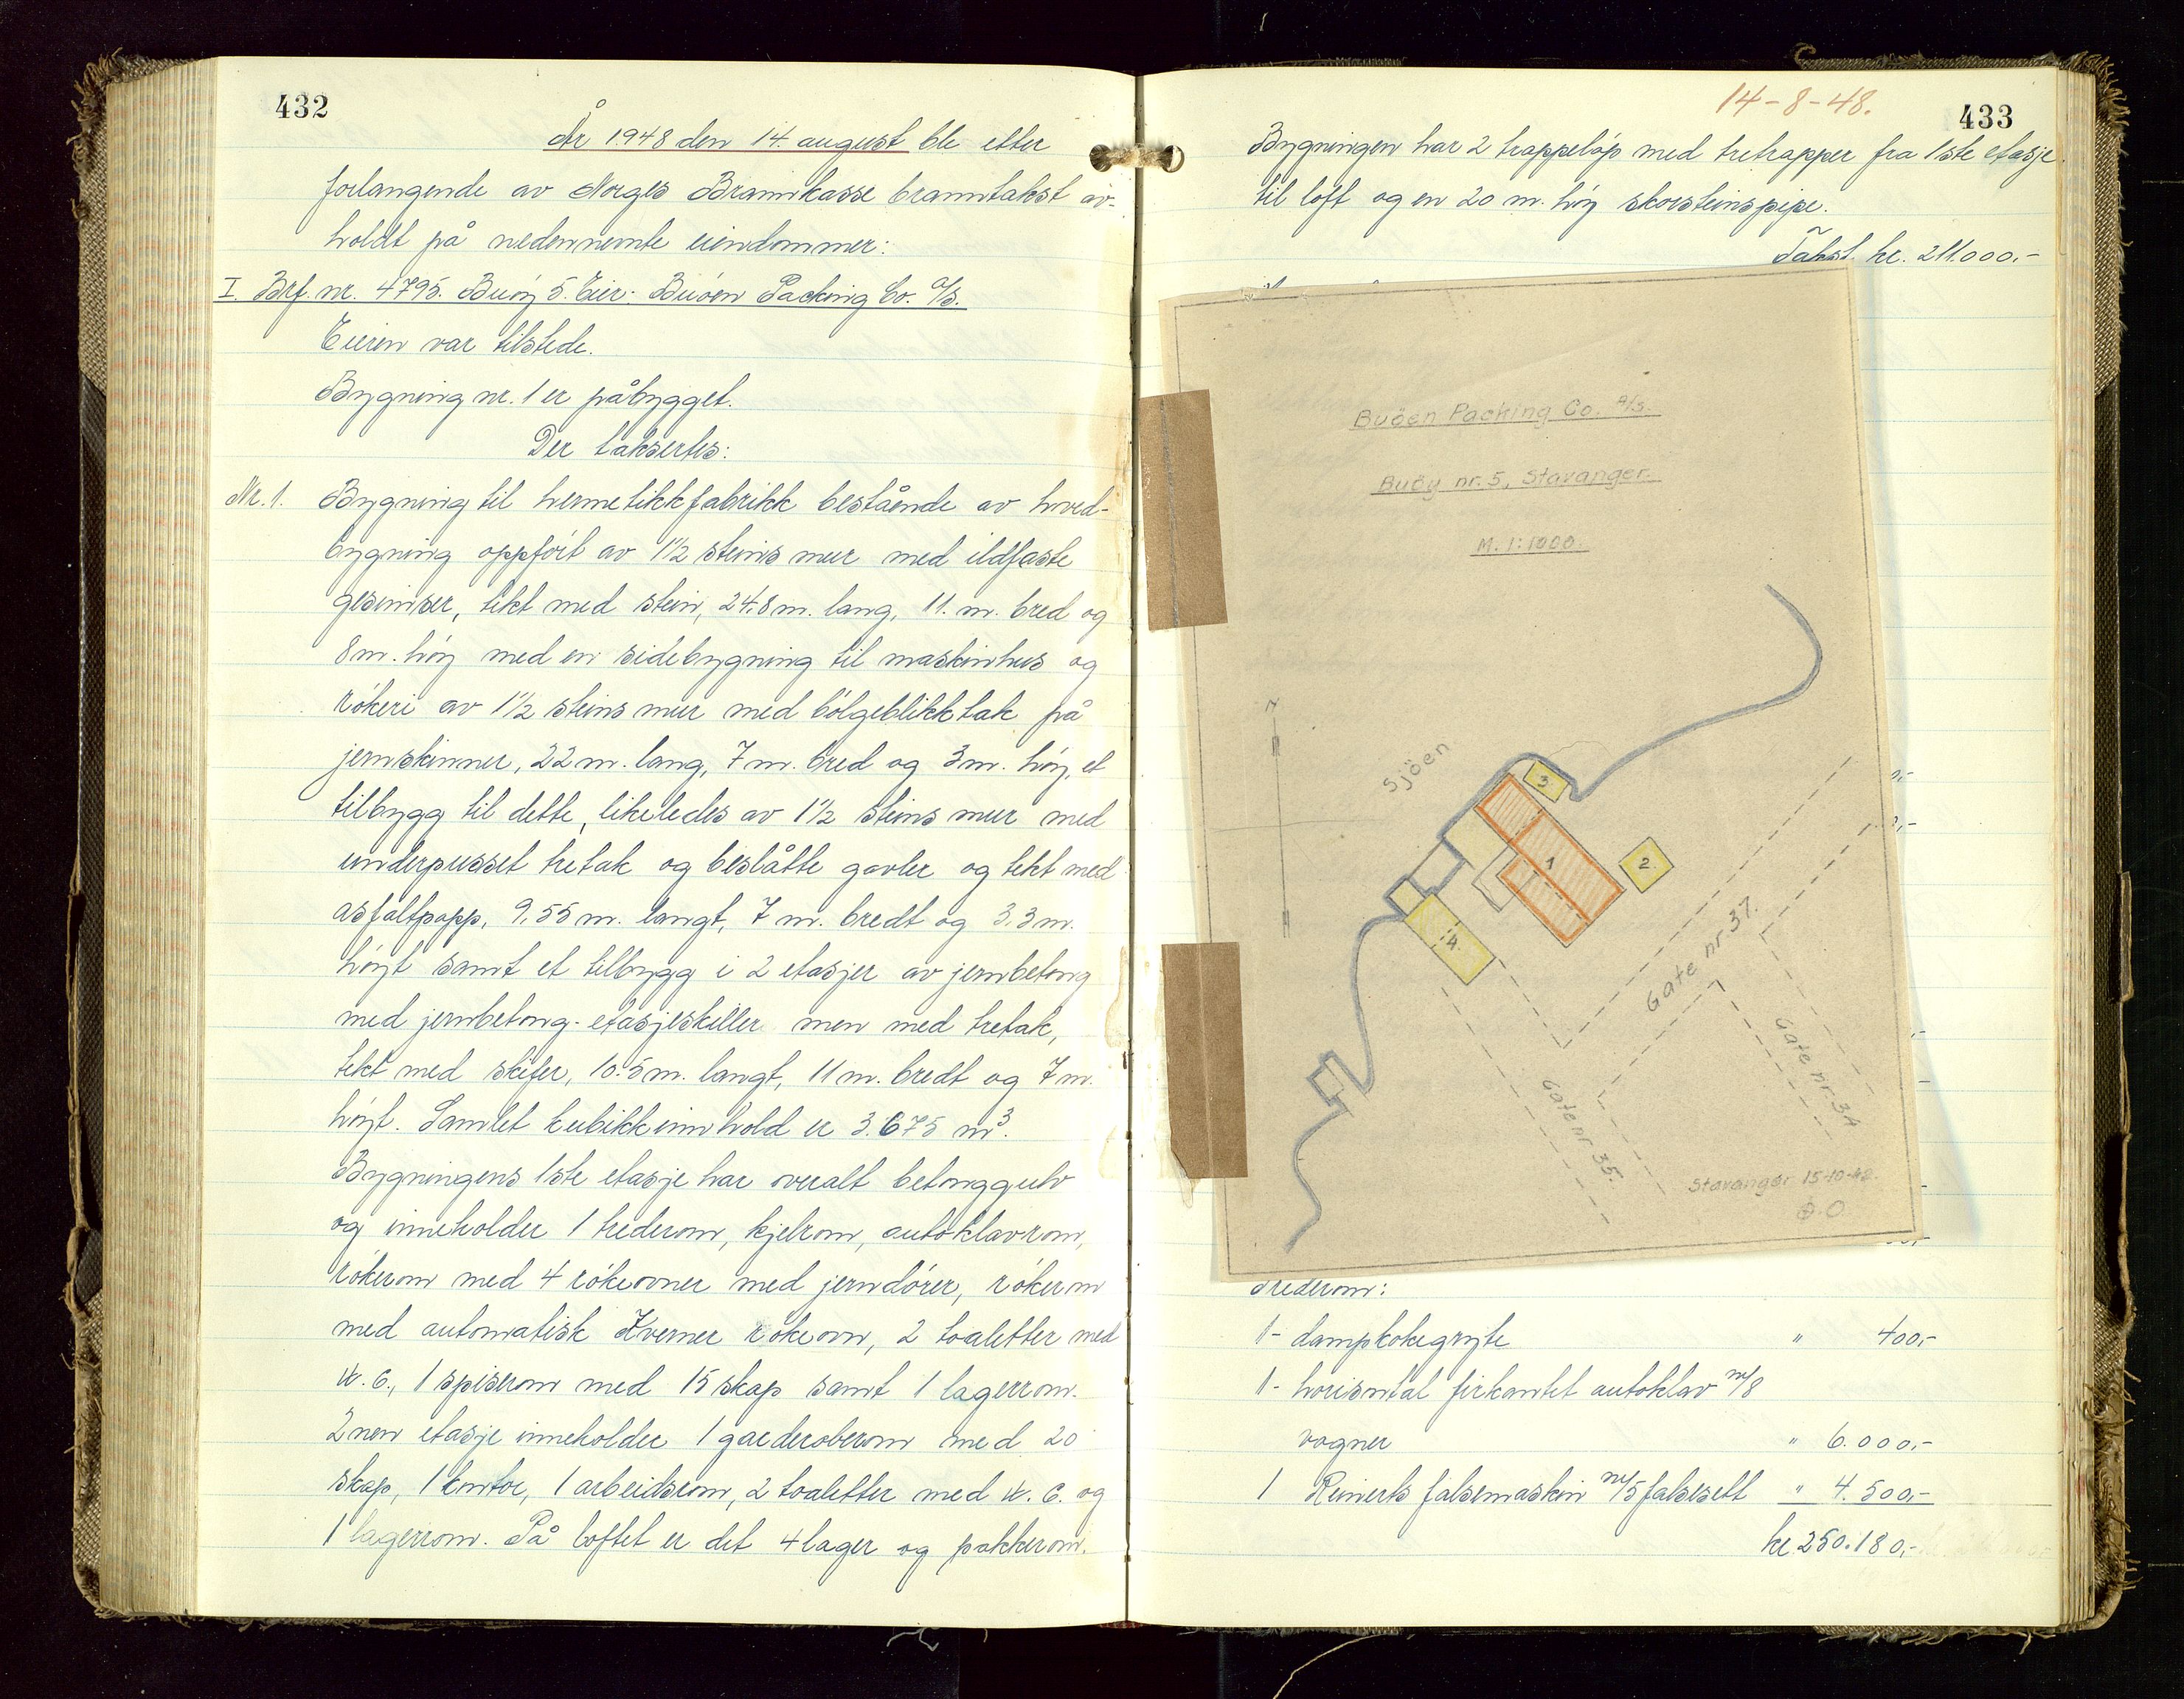 432
År 1948 den 14. august ble etter
forlangende av Norges Brannkasse branntakst av-
holdt på nedennevnte eiendommer:
I. Brf. nr. 4795. Buöy 5. Eier: Buöen Packing Co. A/S.
Eieren var tilstede.
Bygning nr. 1 er påbygget.
Der taksertes:
Nr. 1. Bygning til hermetikkfabrikk bestående av hoved-
bygning oppfört av 1½ steins mur med ildfaste
gesimser, tekt med stein, 24.8 m. lang, 11. m. bred og
8 m. höy med en sidebygning til maskinhus og
rökeri av 1½ steins mur med bölgeblikktak på
jernskinner, 22 m. lang, 7 m. bred og 3 m. höy, et
tilbygg til dette, likeledes av 1½ steins mur med
underpusset tretak og beslåtte gavler og tekt med
asfaltpapp, 9,55 m. langt, 7 m. bredt og 3.3 m.
höyt samt et tilbygg i 2 etasjer av jernbetong
med jernbetong-etasjeskiller men med tretak,
tekt med skifer, 10.5 m. langt, 11 m. bredt og 7 m.
höyt. Samlet kubikkinnhold er 3.675 m³.
Bygningens 1ste etasje har overalt betonggulv
og inneholder 1 trederom, kjelrom, autoklavrom,
rökerom med 4 rökeovner med jerndörer, rökerom
med automatisk Kverner rökeovn, 2 toaletter med
W.C., 1 spiserom med 15 skap samt 1 lagerrom.
2nen etasje inneholder 1 garderoberom med 20
skap, 1 kontor, 1 arbeidsrom, 2 toaletter med W.C. og
1 lagerrom. På loftet er det 4 lager og pakkerom.
14-8-48.
433
Bygningen har 2 trappelöp med tretrapper fra 1ste etasje
til loft og en 20 m. höy skorsteinspipe.
Takst kr. 211.000.-
Buöen Packing Co. A/S.
Buöy nr. 5, Stavanger.
M. 1:1000.
N
Sjöen
3
1
2.
4.
Gate nr. 37.
Gate nr. 34
Gate nr. 35.
Stavanger 15-10-48.
Ø.O.
Trederom:
1- dampkokegryte " 400,-
1- horisontal firkantet autoklav m/8
vogner " 6.000,-
1 Reinerts falsemaskin m/5 falsesett " 4.500,-
kr. 250.180,-